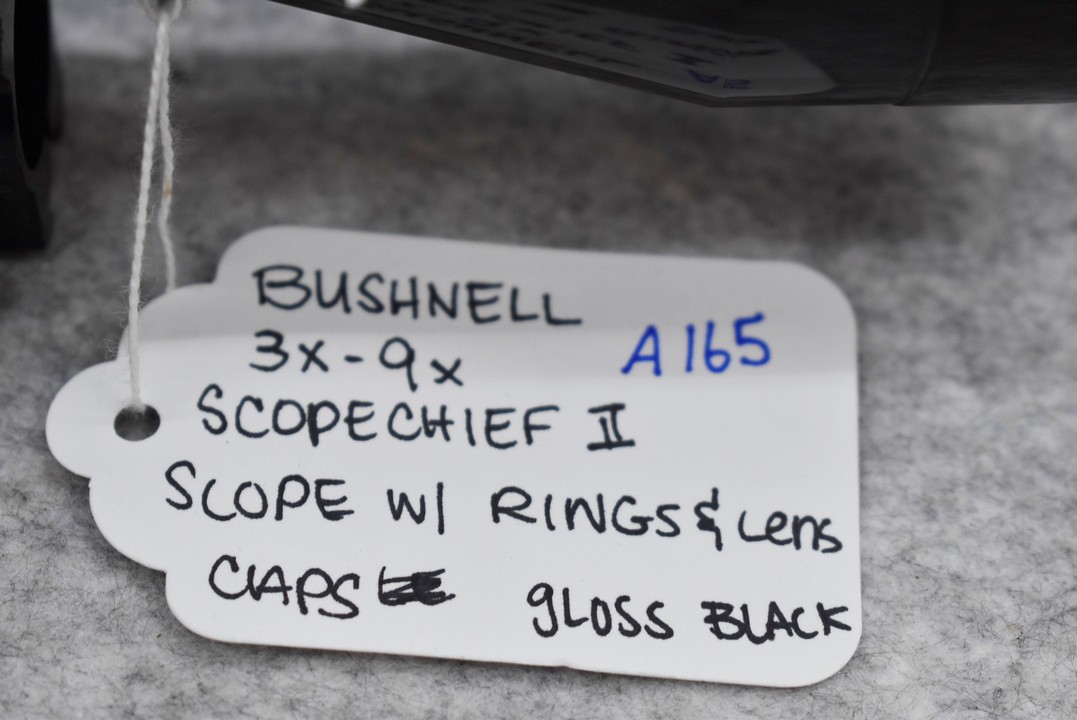 BUSHNELL
3x-9x A165
SCOPECHIEF II
SCOPE W/ RINGS & Lens
CAPS gLOSS BLACK